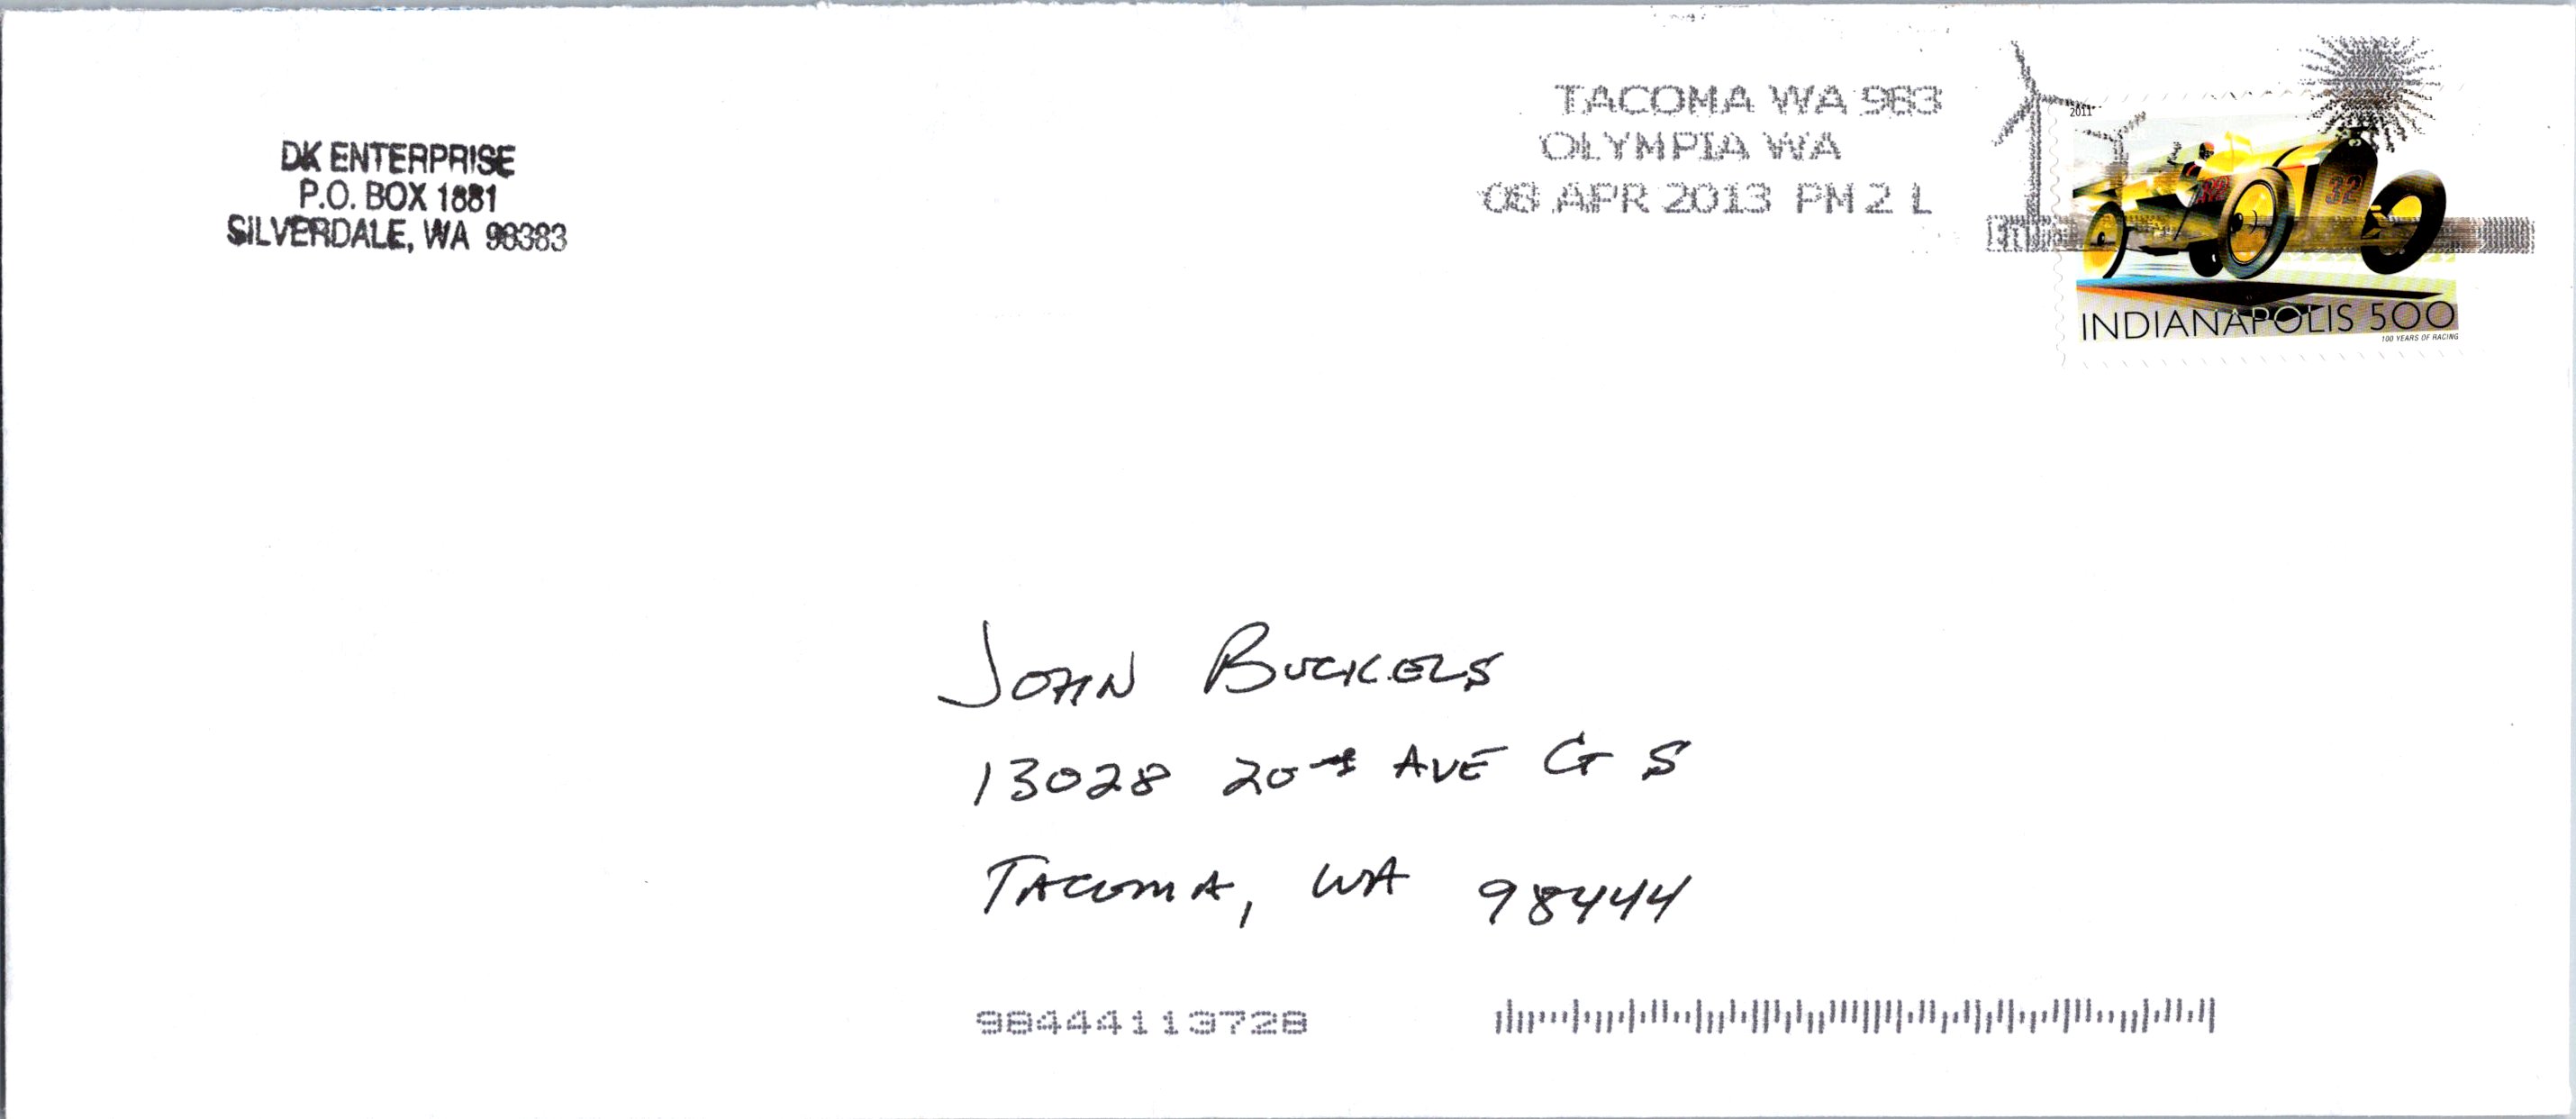 DK ENTERPRISE
P.O. BOX 1881
SILVERDALE, WA 98383
TACOMA WA 983
OLYMPIA WA
08 APR 2013 PM 2 L
2011
32
INDIANAPOLIS 500
100 YEARS OF RACING
JOHN BUCKELS
13028 20th AVE Ct S
TACOMA, WA 98444
98444113728